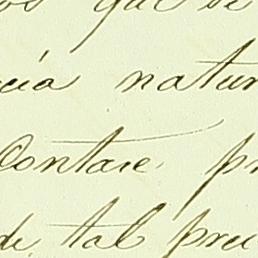 que se
cia natur
Contare pr
de tal prec